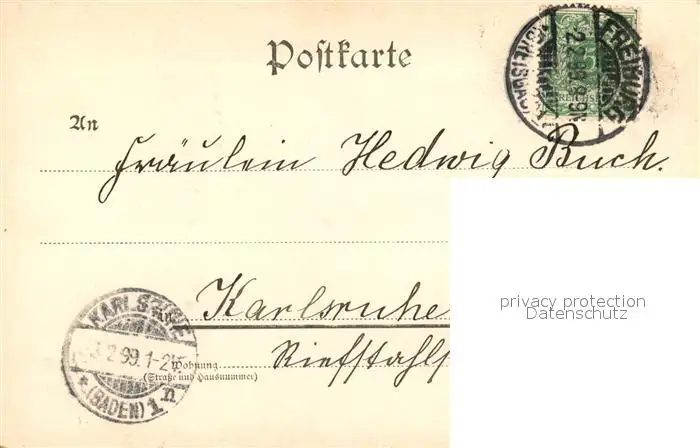 Postkarte
FREIBURG
(BREISGAU)
REICHSP
An
Fräulein Hedwig Buch.
privacy protection
Datenschutz
KARLSRUHE
in Karlsruhe
2 99. 1-2
Wohnung
(Straße und Hausnummer)
Riefstahls
(BADEN) 1